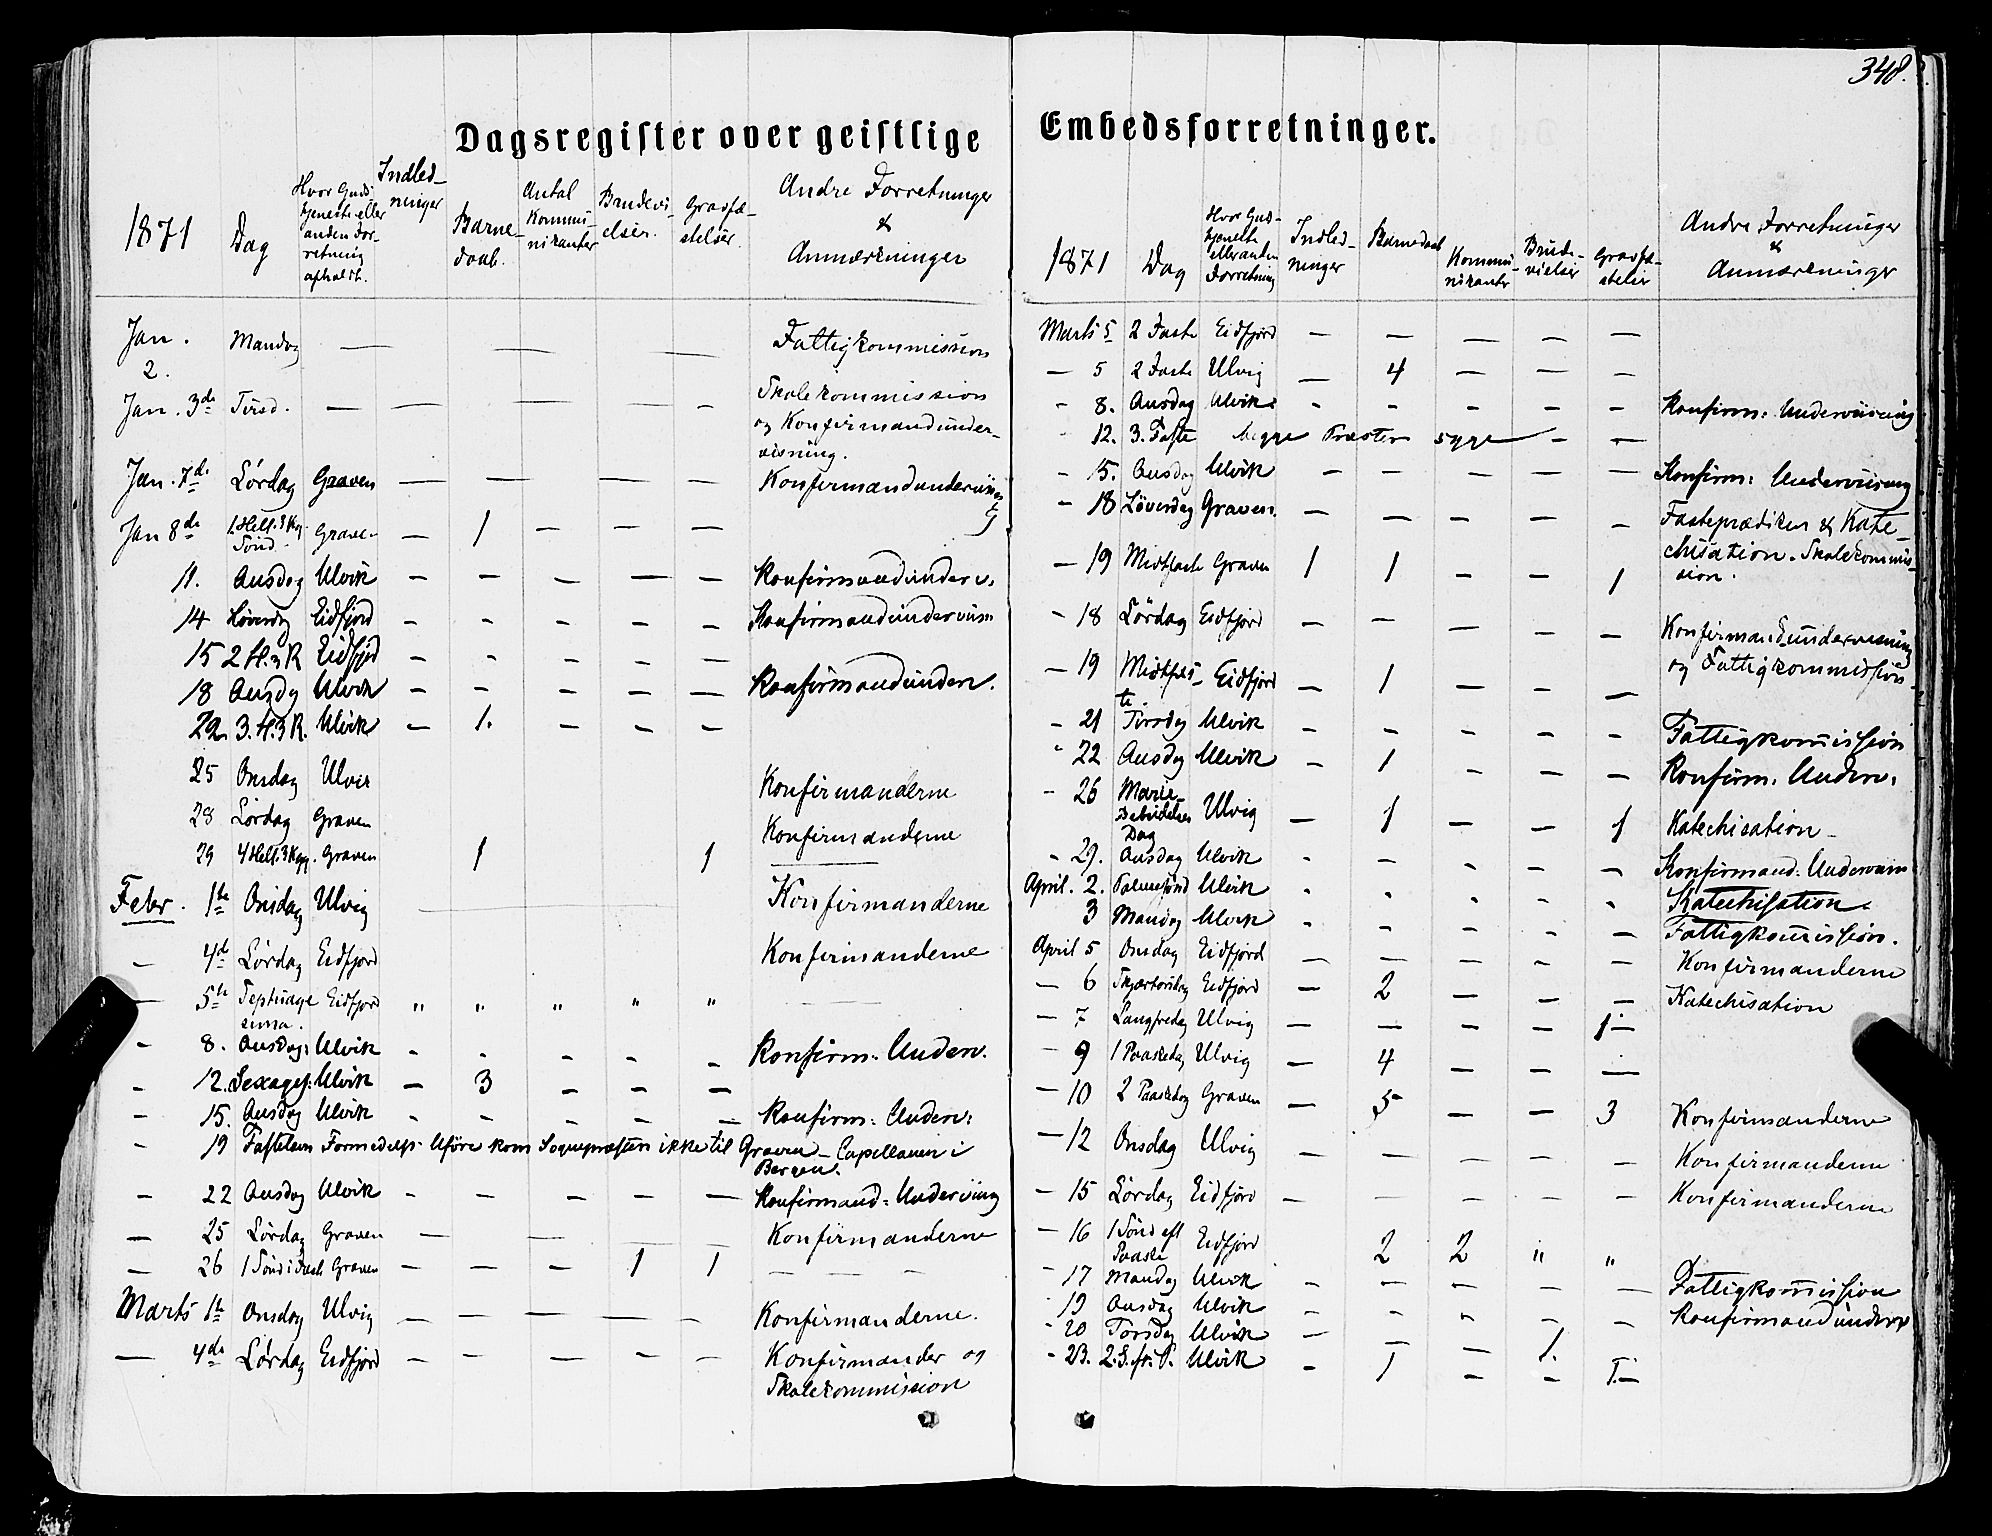 348.
Dagsregister over geistlige Embedsforretninger.
1871 Dag Hvor Gudstjeneste eller anden Forretning afholdt. Indledninger Barnedaab. Antal Kommunikanter Brudevielser. Gravfæstelser. Andre Forretninger & Anmærkninger
Jan. 2. Mandag — — — Fattigkommission
Jan. 3de Tirsd. — — — — — Skolekommission
og Konfirmandunder-
visning.
Jan. 7de Lørdag Graven — — — — — Konfirmandundervisning
Jan 8de 1. Hell. 3 Kg. Sønd. Graven — 1 — — —
11. Onsdag Ulvik — — — — — Konfirmandunderv.
14 Løverdg Eidfjord — — — — — Konfirmandundervisn
15 2 H. 3 K Eidfjd — — — — —
18 Onsdg Ulvik — — — — — Konfirmandunderv.
22. 3. H. 3 K. Ulvik — 1. — — —
25 Onsdag Ulvik Konfirmanderne
28 Lørdag Graven Konfirmanderne
29 4 Hell. 3 Kgg. Graven 1 1 —
Febr. 1te Onsdag Ulvig — Konfirmanderne
— 4de Lørdag Eidfjord Konfirmanderne
— 5te Septuage Eidfjord " " " " " —
sima.
- 8. Onsdag: Ulvik - - - - - Konfirm: Underv.
- 12. Sexages: Ulvik — 3 — — —
- 15. Onsdag Ulvik - - - - - Konfirm: Underv:
- 19 Fastelavn Formedelst Uføre kom Sognepræsten ikke til Graven — Capellanen i
Bergen.
- 22 Onsdag Ulvik - — — — — Konfirmand: Underviisng
— 25 Lørdag Graven — — — — Konfirmanderne
— 26 1 Sønd i Faste Graven — — — 1 1 — — —
Marts 1te Onsdag Ulvig — — — — — Konfirmanderne.
— 4de Lørdag Eidfjord — — — — — Konfirmander og
Skolekommission
1871 Dag Hvor Gudstjeneste eller anden Forretning Indledninger Barnedaab Kommunikanter Brudevielser Gravfæstelser Andre Forretninger & Anmærkninger
Marts 5 2 Faste Eidfjord — — — — —
— 5 2 Faste Ulvig — 4 — — —
- 8. Onsdag Ulvik: - - - - — Konfirm: Underviisning
- 12. 3. Faste begge Præster syge — —
- 15. Onsdag Ulvik — — — — — Konfirm: Underviisning
- 18 Løverdag Graven. — — — — — Fasteprædiken & Kate-
chisation. Skolekommis-
sion.
— 19 Midtfaste Graven 1 1 — — 1
- 18 Lördag Eidfjord — — — — — Konfirmandundervisning
og Fattigkommission
— 19 Midtfas- Eidfjord — 1 — — —
te.
- 21 Tirsdag Ulvik — - - - — Fattigkommission
- 22 Onsdag Ulvik — 1 - — — Konfirm. Underv:
- 26 Mariæ Bebudelses Dag Ulvig — 1 — — 1 Katechisation —
- 29. Onsdag Ulvik - - - - — Konfirmand: Underviisn
April. 2. Palmesønd Ulvik - - - - - Katechisation.
3 Mandag Ulvik - - - - — Fattigkommission.
April 5 Onsdag Eidfjord — — — — — Konfirmanderne
— 6 Skjærtorsdag Eidfjord — 2 — — — Katechisation
— 7 Langfredag Ulvig — — — — 1 —
— 9 1 Paaskedag Ulvig — 4 — — —
— 10 2 Paaskedag Graven — 5 — — 3 Konfirmanderne
— 12 Onsdag Ulvig — — — — — Konfirmanderne
— 15 Lördag Eidfjord — — — — — Konfirmanderne
— 16 1 Sønd eft Paaske Eidfjord 2 2 " "
- 17 Mandag Ulvik - — — — — Fattigkommission
- 19 Onsdag Ulvik - - - - — Konfirmandunderv
- 20 Torsdag Ulvik — — — 1.
- 23. 2. S. eft. P. Ulvik — 1 — — 1. —